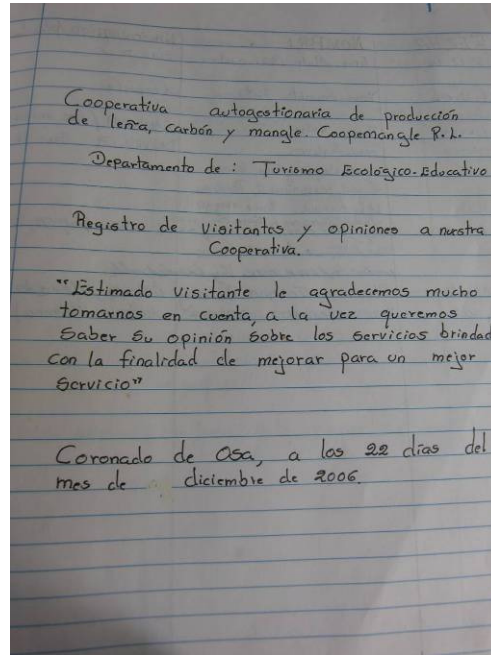 Cooperativa autogestionaria de producción
de leña, carbón y mangle. Coopemangle R.L.
Departamento de: Turismo Ecológico-Educativo
Registro de visitantes y opiniones a nuestra
Cooperativa.
"Estimado visitante le agradecemos mucho
tomarnos en cuenta, a la vez queremos
saber su opinión sobre los servicios brindad
con la finalidad de mejorar para un mejor
servicio"
Coronado de Osa, a los 22 días del
mes de diciembre de 2006.